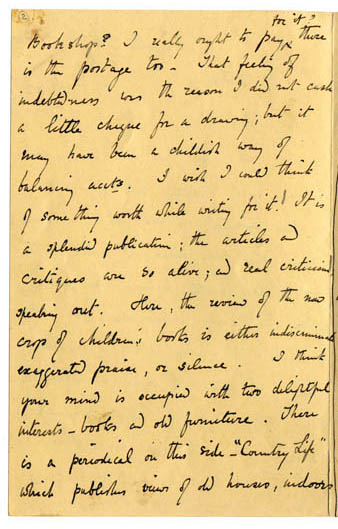 2.
for it?
Bookshop? I really ought to pay x there
is the postage too - That feeling of
indebtedness was the reason I did not cash
a little cheque for a drawing; but it
may have been a childish way of
balancing accts. I wish I could think
of something worth while writing for it! It is
a splendid publication; the articles and
critiques are so alive; and real criticism
speaking out. Here, the review of the new
crop of children's books is either indiscriminate
exaggerated praise, or silence. I think
your mind is occupied with two delightful
interests - books and old furniture. There
is a periodical on this side - "Country Life"
which publishes views of old houses, indoors